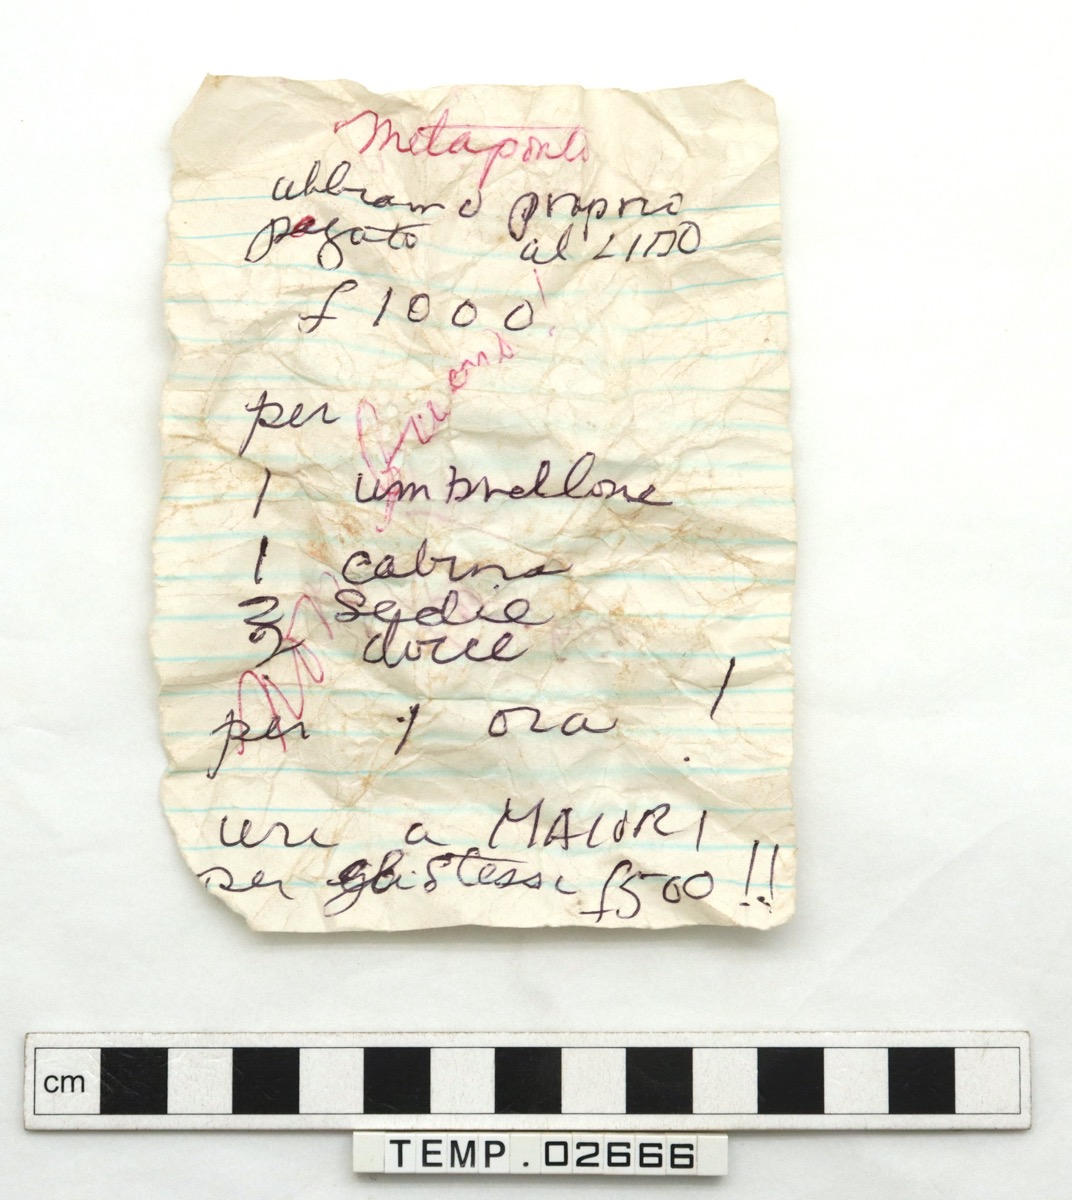 Metaponto
abbiamo proprio
pagato al LIDO
£ 1000
per
1 umbrellone
1 cabina
2 sedie
2 docce
per 1 ora !
ieri a MAIORI
per gli stessi £500 !!
cm
TEMP.02666